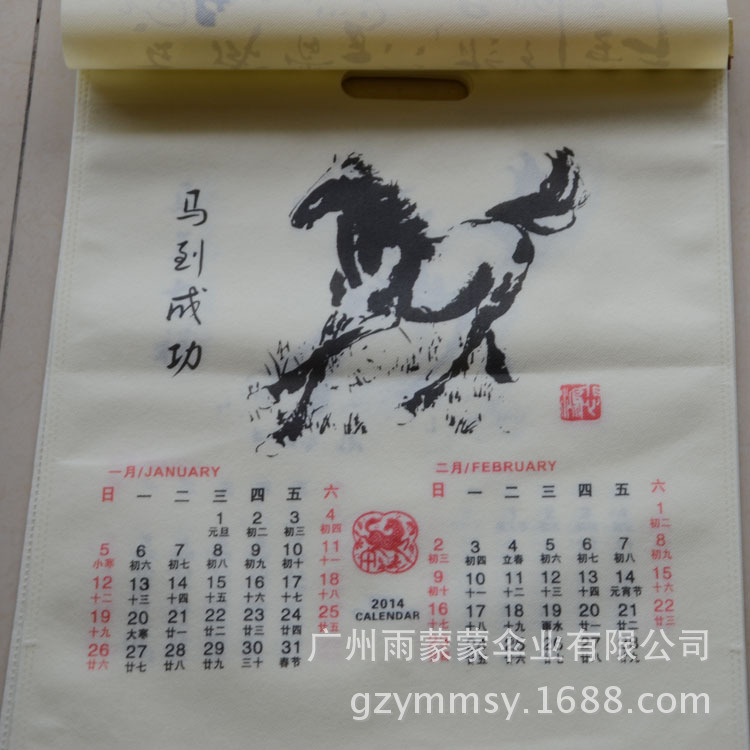 马到成功
一月/JANUARY
日 一 二 三 四 五 六
1 2 3 4
元旦 初二 初三 初四
5 6 7 8 9 10 11
小寒 初六 初七 初八 初九 初十 十一
12 13 14 15 16 17 18
十二 十三 十四 十五 十六 十七 十八
19 20 21 22 23 24 25
十九 大寒 廿一 廿二 廿三 廿四 廿五
26 27 28 29 30 31
廿六 廿七 廿八 廿九 三十 春节
2014
CALENDAR
二月/FEBRUARY
日 一 二 三 四 五 六
1
初二
2 3 4 5 6 7 8
初三 初四 立春 初六 初七 初八 初九
9 10 11 12 13 14 15
初十 十一 十二 十三 十四 元宵节 十六
16 17 18 19 20 21 22
十七 十八 十九 雨水 廿一 廿二 廿三
广州雨蒙蒙伞业有限公司
gzymmsy.1688.com